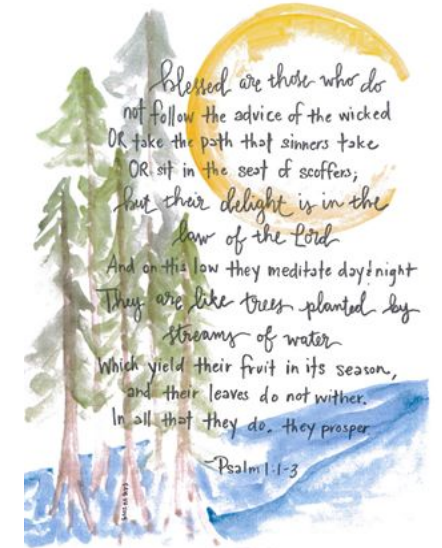 blessed are those who do
not follow the advice of the wicked
OR take the path that sinners take
OR sit in the seat of scoffers;
but their delight is in the
law of the Lord
And on his law they meditate day & night
They are like trees planted by
streams of water
Which yield their fruit in its season,
and their leaves do not wither.
In all that they do, they prosper
~Psalm 1:1-3